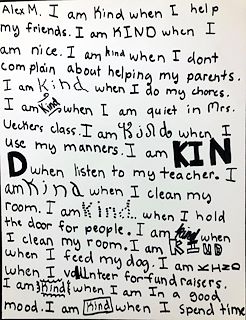 Alex M. I am Kind when I help
my friends. I am KIND when I
am nice. I am kind when I dont
complain about helping my parents.
I am Kind when I do my chores.
I am Kind when I am quiet in Mrs.
Ueckers class. I am Kind when I
use my manners. I am KIN
D when listen to my teacher. I
am Kind when I clean my
room. I am Kind when I hold
the door for people. I am kind when
I clean my room. I am KIND
when I feed my dog. I am KIND
when I volunteer for fund raisers.
I am Kind when I am In a good
mood. I am Kind when I spend time